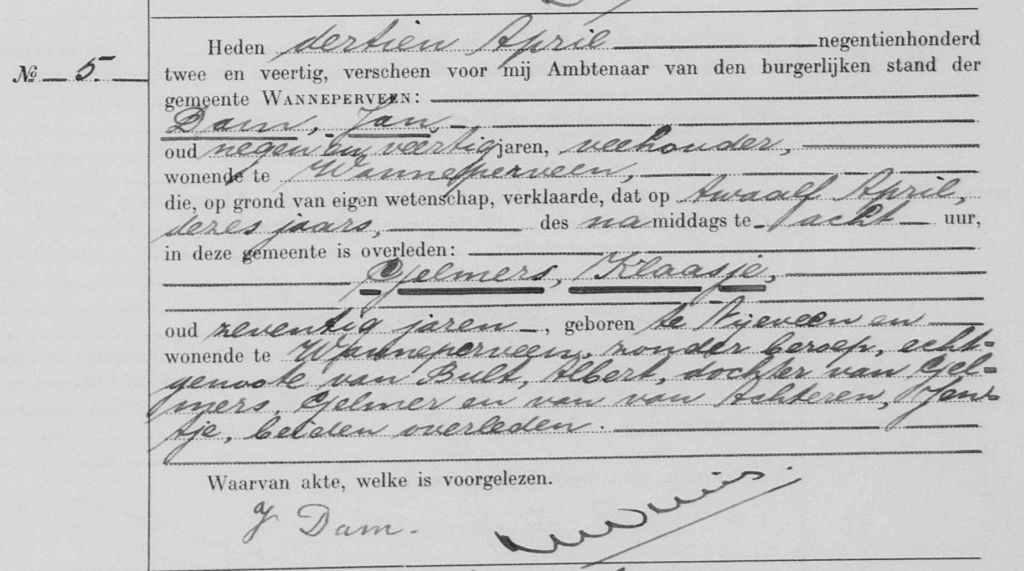 Heden dertien April negentienhonderd
№ 5. twee en veertig, verscheen voor mij Ambtenaar van den burgerlijken stand der
gemeente WANNEPERVEEN:
Dam, Jan,
oud negen en veertig jaren, veehouder,
wonende te Wanneperveen,
die, op grond van eigen wetenschap, verklaarde, dat op twaalf April,
dezes jaars, des namiddags te acht uur,
in deze gemeente is overleden:
Gjelmers, Klaasje,
oud zeventig jaren, geboren te Nijeveen en
wonende te Wanneperveen, zonder beroep, echt-
genoote van Bult, Albert, dochter van Gjel-
mers, Gjelmer en van van Achteren, Jan-
tje, beiden overleden.
Waarvan akte, welke is voorgelezen.
J Dam.